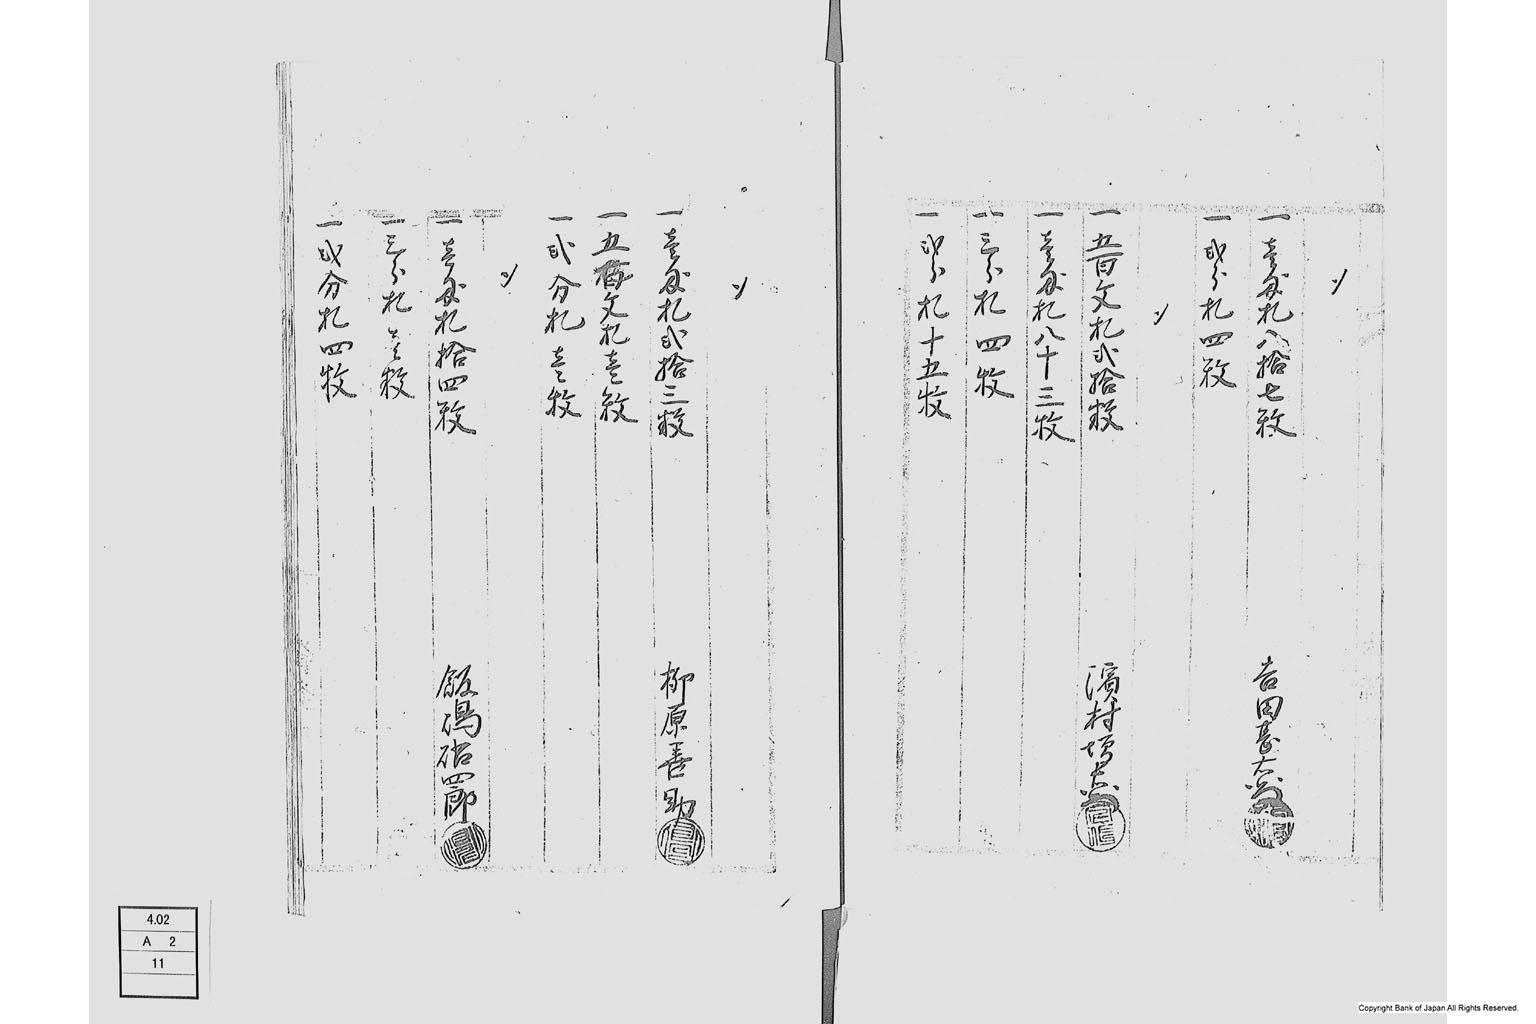 一 壱匁札八拾七枚
吉田甚右衛門
一 弐分札四枚
一 五百文札弐拾枚
濱村
一 壱匁札八十三枚
一 三分札四枚
一 弐分札十五枚
一 壱匁札弐拾三枚
柳原善助
一 五百文札壱枚
一 弐分札壱枚
一 壱匁札拾四枚
飯嶋治四郎
一 三分札壱枚
一 弐分札四枚
4.02
A 2
11
Copyright Bank of Japan All Rights Reserved.